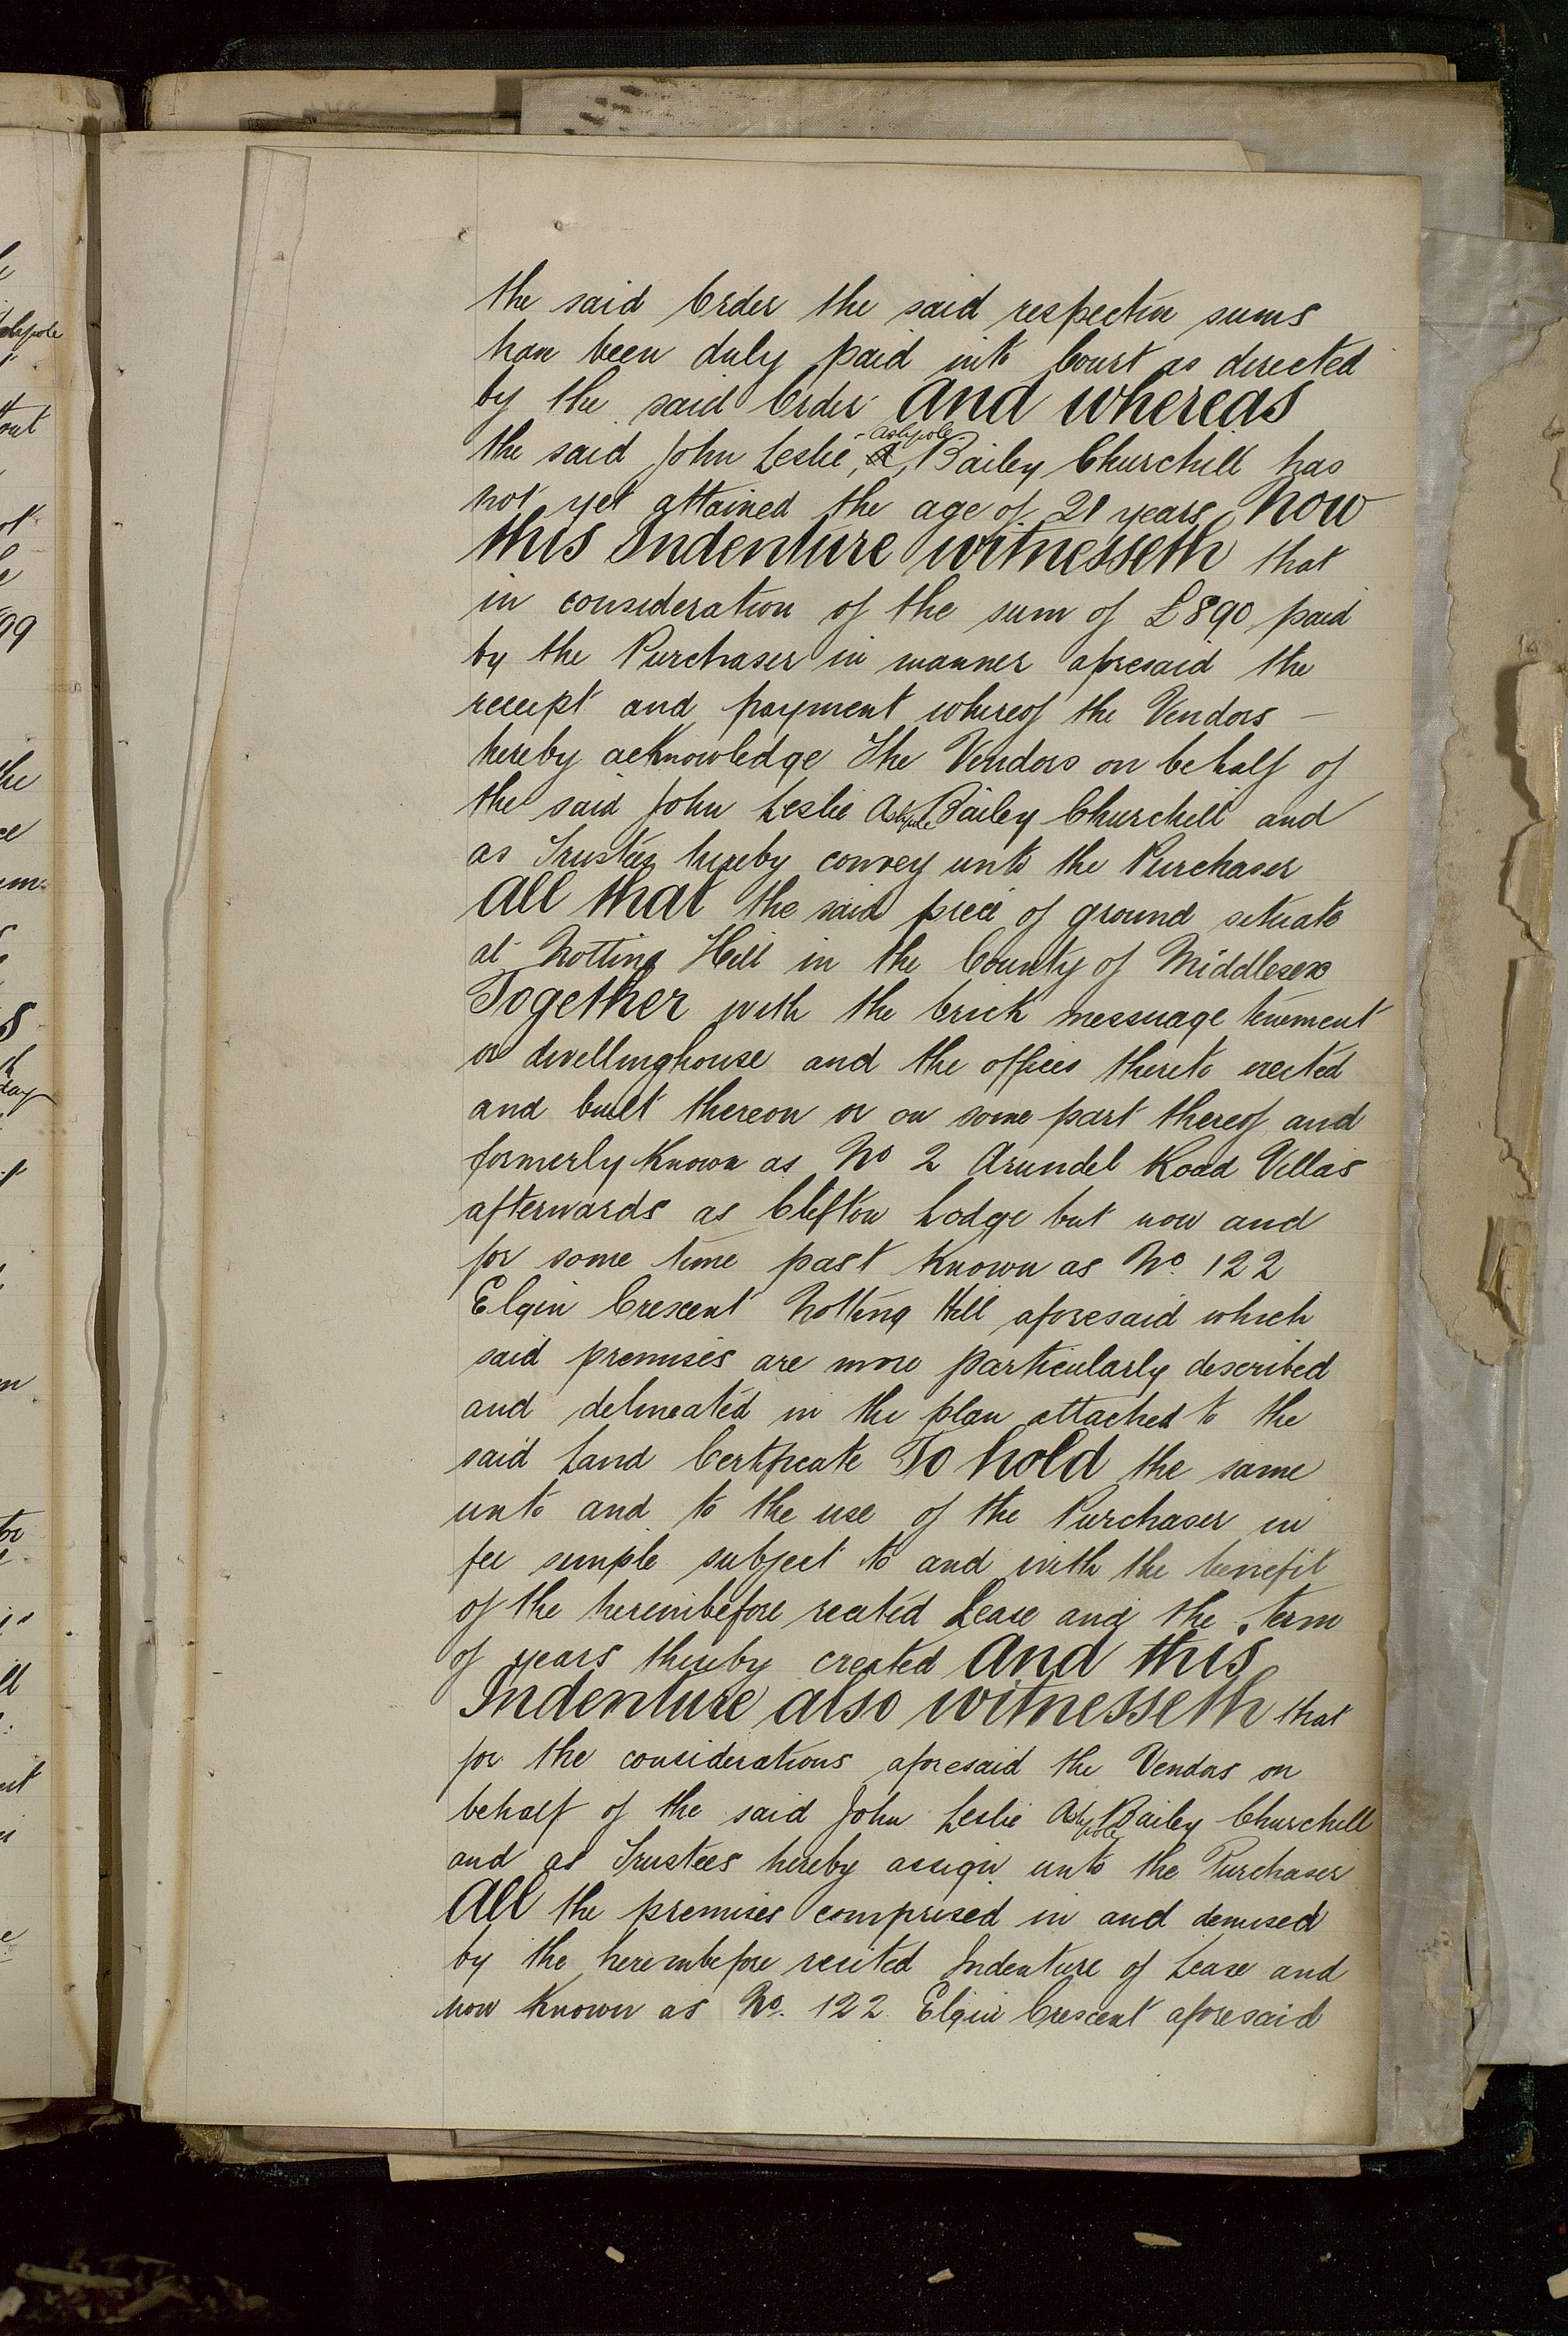 the said Order the said respective sums
have been duly paid into Court as directed
by the said Order And whereas
the said John Leslie Ashpole Bailey Churchill has
not yet attained the age of 21 years Now
this Indenture witnesseth that
in consideration of the sum of £890 paid
by the Purchaser in manner aforesaid the
receipt and payment whereof the Vendors —
hereby acknowledge The Vendors on behalf of
the said John Leslie Ashpole Bailey Churchill and
as Trustees hereby convey unto the Purchaser
All that the said piece of ground situate
at Notting Hill in the County of Middlesex
Together with the brick messuage tenement
or dwellinghouse and the offices thereto erected
and built thereon or on some part thereof and
formerly known as No 2 Arundel Road Villas
afterwards as Clifton Lodge but now and
for some time past known as No. 122
Elgin Crescent Notting Hill aforesaid which
said premises are more particularly described
and delineated in the plan attached to the
said Land Certificate To hold the same
unto and to the use of the Purchaser in
fee simple subject to and with the benefit
of the hereinbefore recited Lease and the term
of years thereby created And this
Indenture also witnesseth that
for the considerations aforesaid the Vendors on
behalf of the said John Leslie Ashpole Bailey Churchill
and as Trustees hereby assign unto the Purchaser
All the premises comprised in and demised
by the hereinbefore recited Indenture of Lease and
now known as No. 122 Elgin Crescent aforesaid